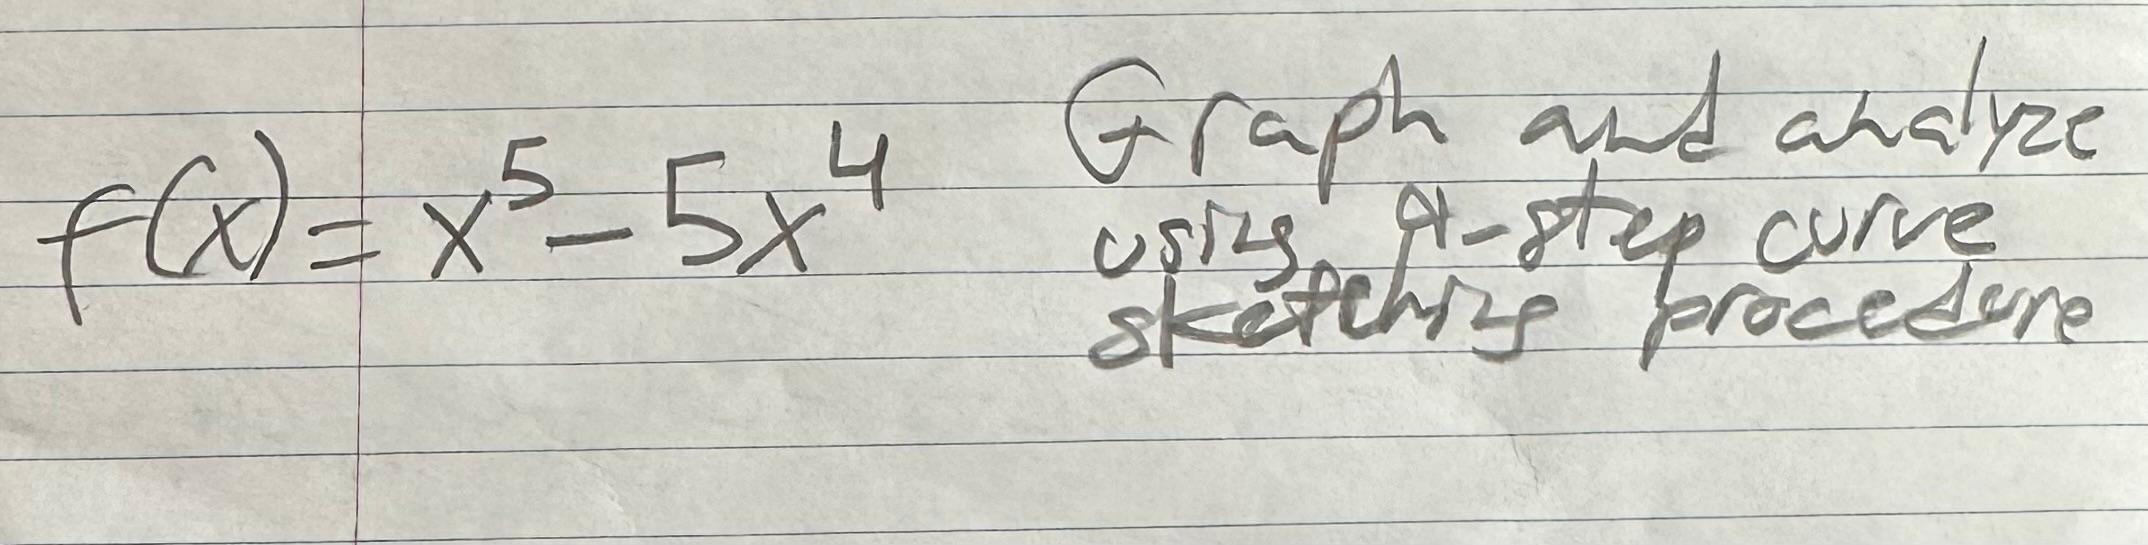 f(x) = x⁵ - 5x⁴
Graph and analyze
using 4-step curve
sketching procedure